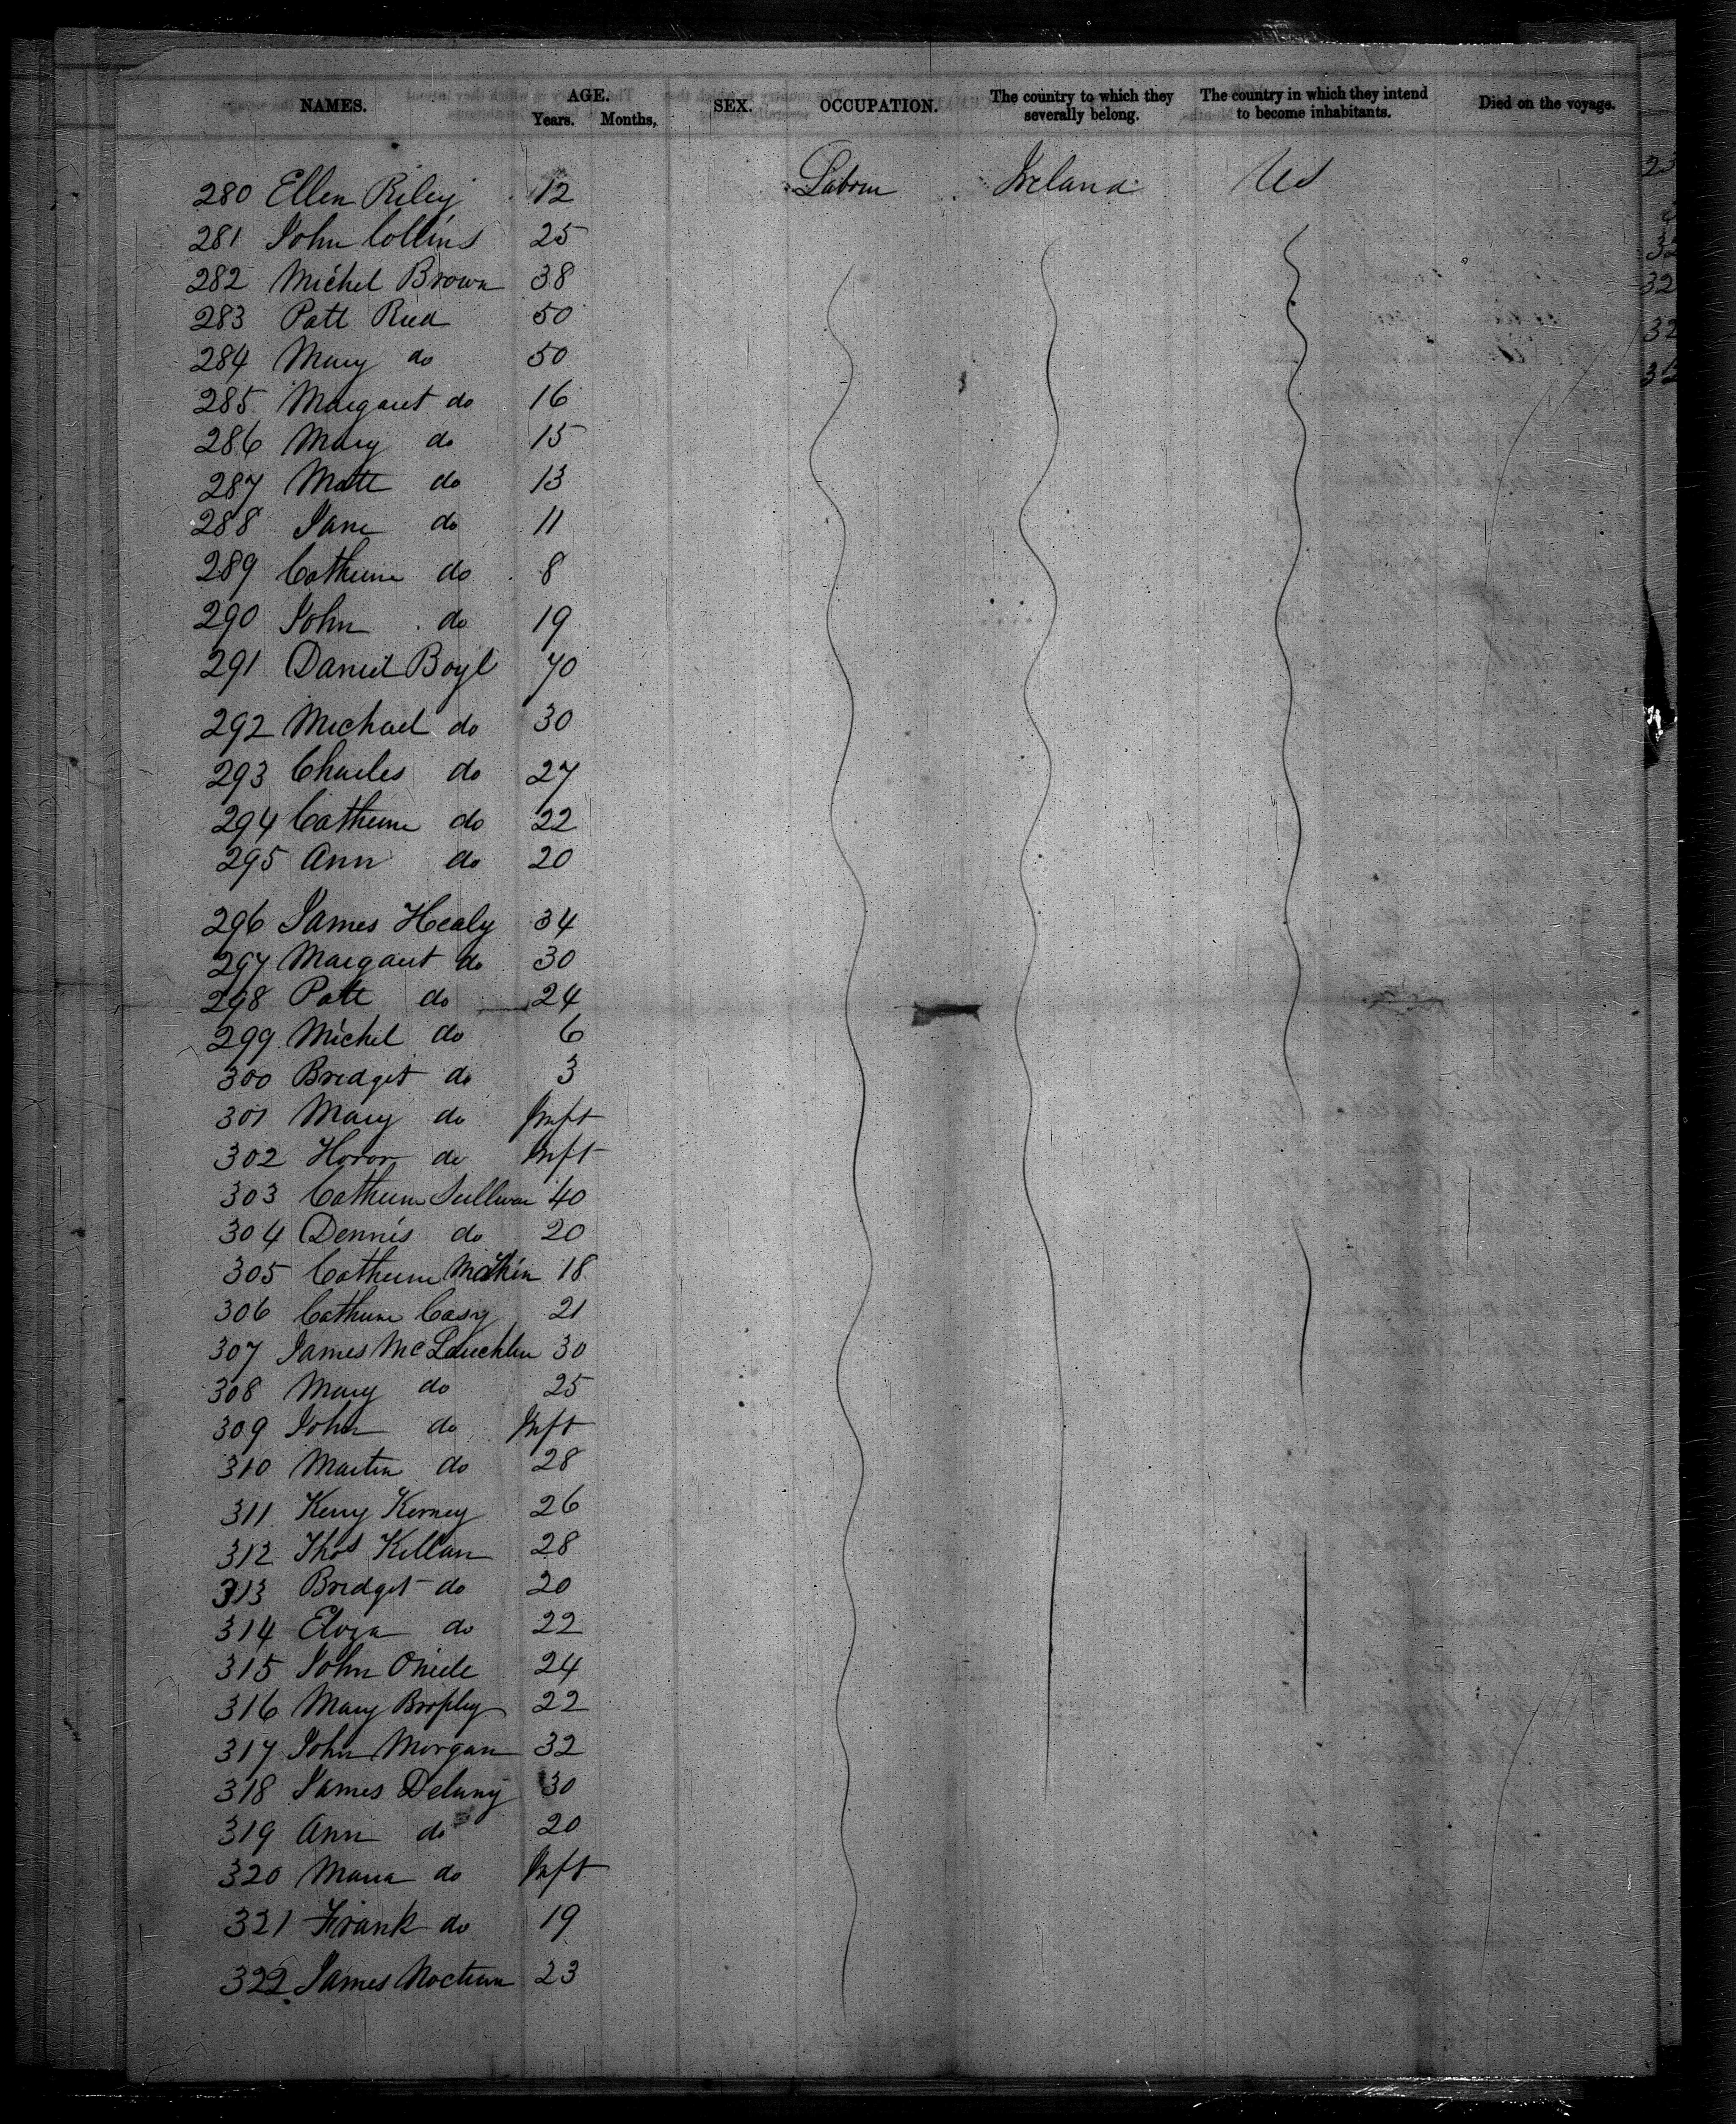 NAMES. AGE. Years. Months, SEX. OCCUPATION. The country to which they severally belong. The country in which they intend to become inhabitants. Died on the voyage.
280 Ellen Riley 12 Labour Ireland US
281 John Collins 25
282 Michel Brown 38
283 Patt Reed 50
284 Mary do 50
285 Margaret do 16
286 Mary do 15
287 Matt do 13
288 Jane do 11
289 Catherine do 8
290 John do 19
291 Daniel Boyl 70
292 Michael do 30
293 Charles do 27
294 Catherine do 22
295 Ann do 20
296 James Healy 34
297 Margaret do 30
298 Patt do 24
299 Michel do 6
300 Bridget do 3
301 Mary do Inft
302 Honor do Inft
303 Catherine Sullivan 40
304 Dennis do 20
305 Catherine 18
306 Catherine Casy 21
307 James McLauchlin 30
308 Mary do 25
309 John do Inft
310 Martin do 28
311 Kerry Kerney 26
312 Thos Killan 28
313 Bridget do 20
314 Eliza do 22
315 John Oniele 24
316 Mary Brophy 22
317 John Morgan 32
318 James Delany 30
319 Ann do 20
320 Maria do Inft
321 Frank do 19
322 James 23